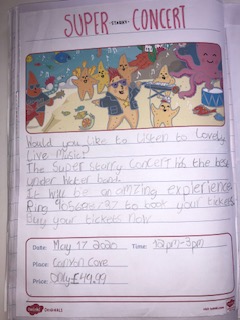 SUPER STARRY CONCERT
Would you like to listen to Lovely
Live Music?
The super starry Concert has the best
under water band.
It will be an amazing experience
Ring to book your tickets
Buy your tickets now
Date: May 17 2020 Time: 12pm-3pm
Place: Cove
Price: Only £49.99
twinkl